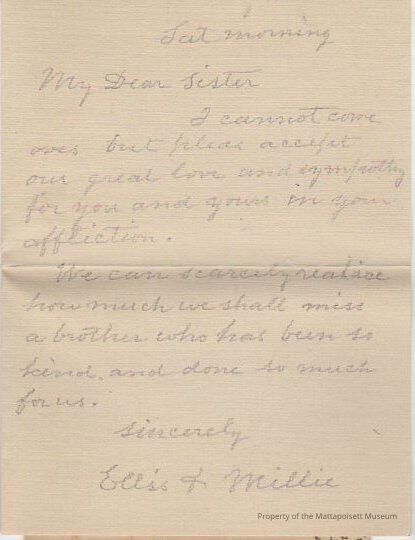 Sat morning
My Dear Sister
I cannot come
over but pleas accept
our great love and sympathy
for you and yours in your
affliction.
We can scarcely realise
how much we shall miss
a brother who has been so
kind, and done so much
for us.
Sincerely
Ellis & Millie
Property of the Mattapoisett Museum